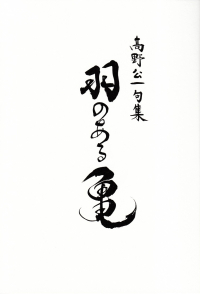 高野公一句集
羽のある亀